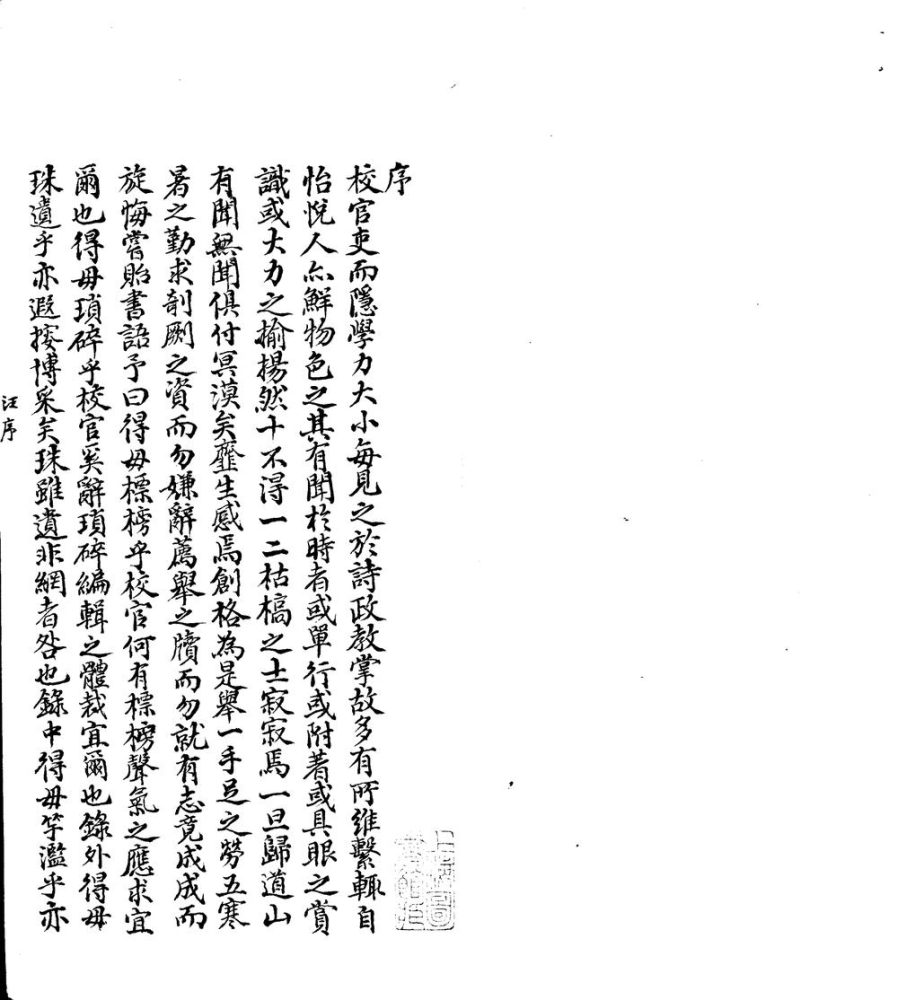 序
校官吏而隱學力大小每見之於詩政教掌故多有所維繫輒自
怡悅人亦鮮物色之其有聞於時者或單行或附著或具眼之賞
識或大力之揄揚然十不得一二枯槁之士寂寂焉一旦歸道山
有聞無聞俱付冥漠矣虀生感焉創格為是舉一手足之勞五寒
暑之勤求剞劂之資而勿嫌辭薦舉之牘而勿就有志竟成成而
旋悔嘗貽書語予曰得毋標榜乎校官何有標榜聲氣之應求宜
爾也得毋瑣碎乎校官奚辭瑣碎編輯之體裁宜爾也錄外得毋
珠遺乎亦遐搜博采矣珠雖遺非網者咎也錄中得毋竽濫乎亦
汪序
上海圖書館藏